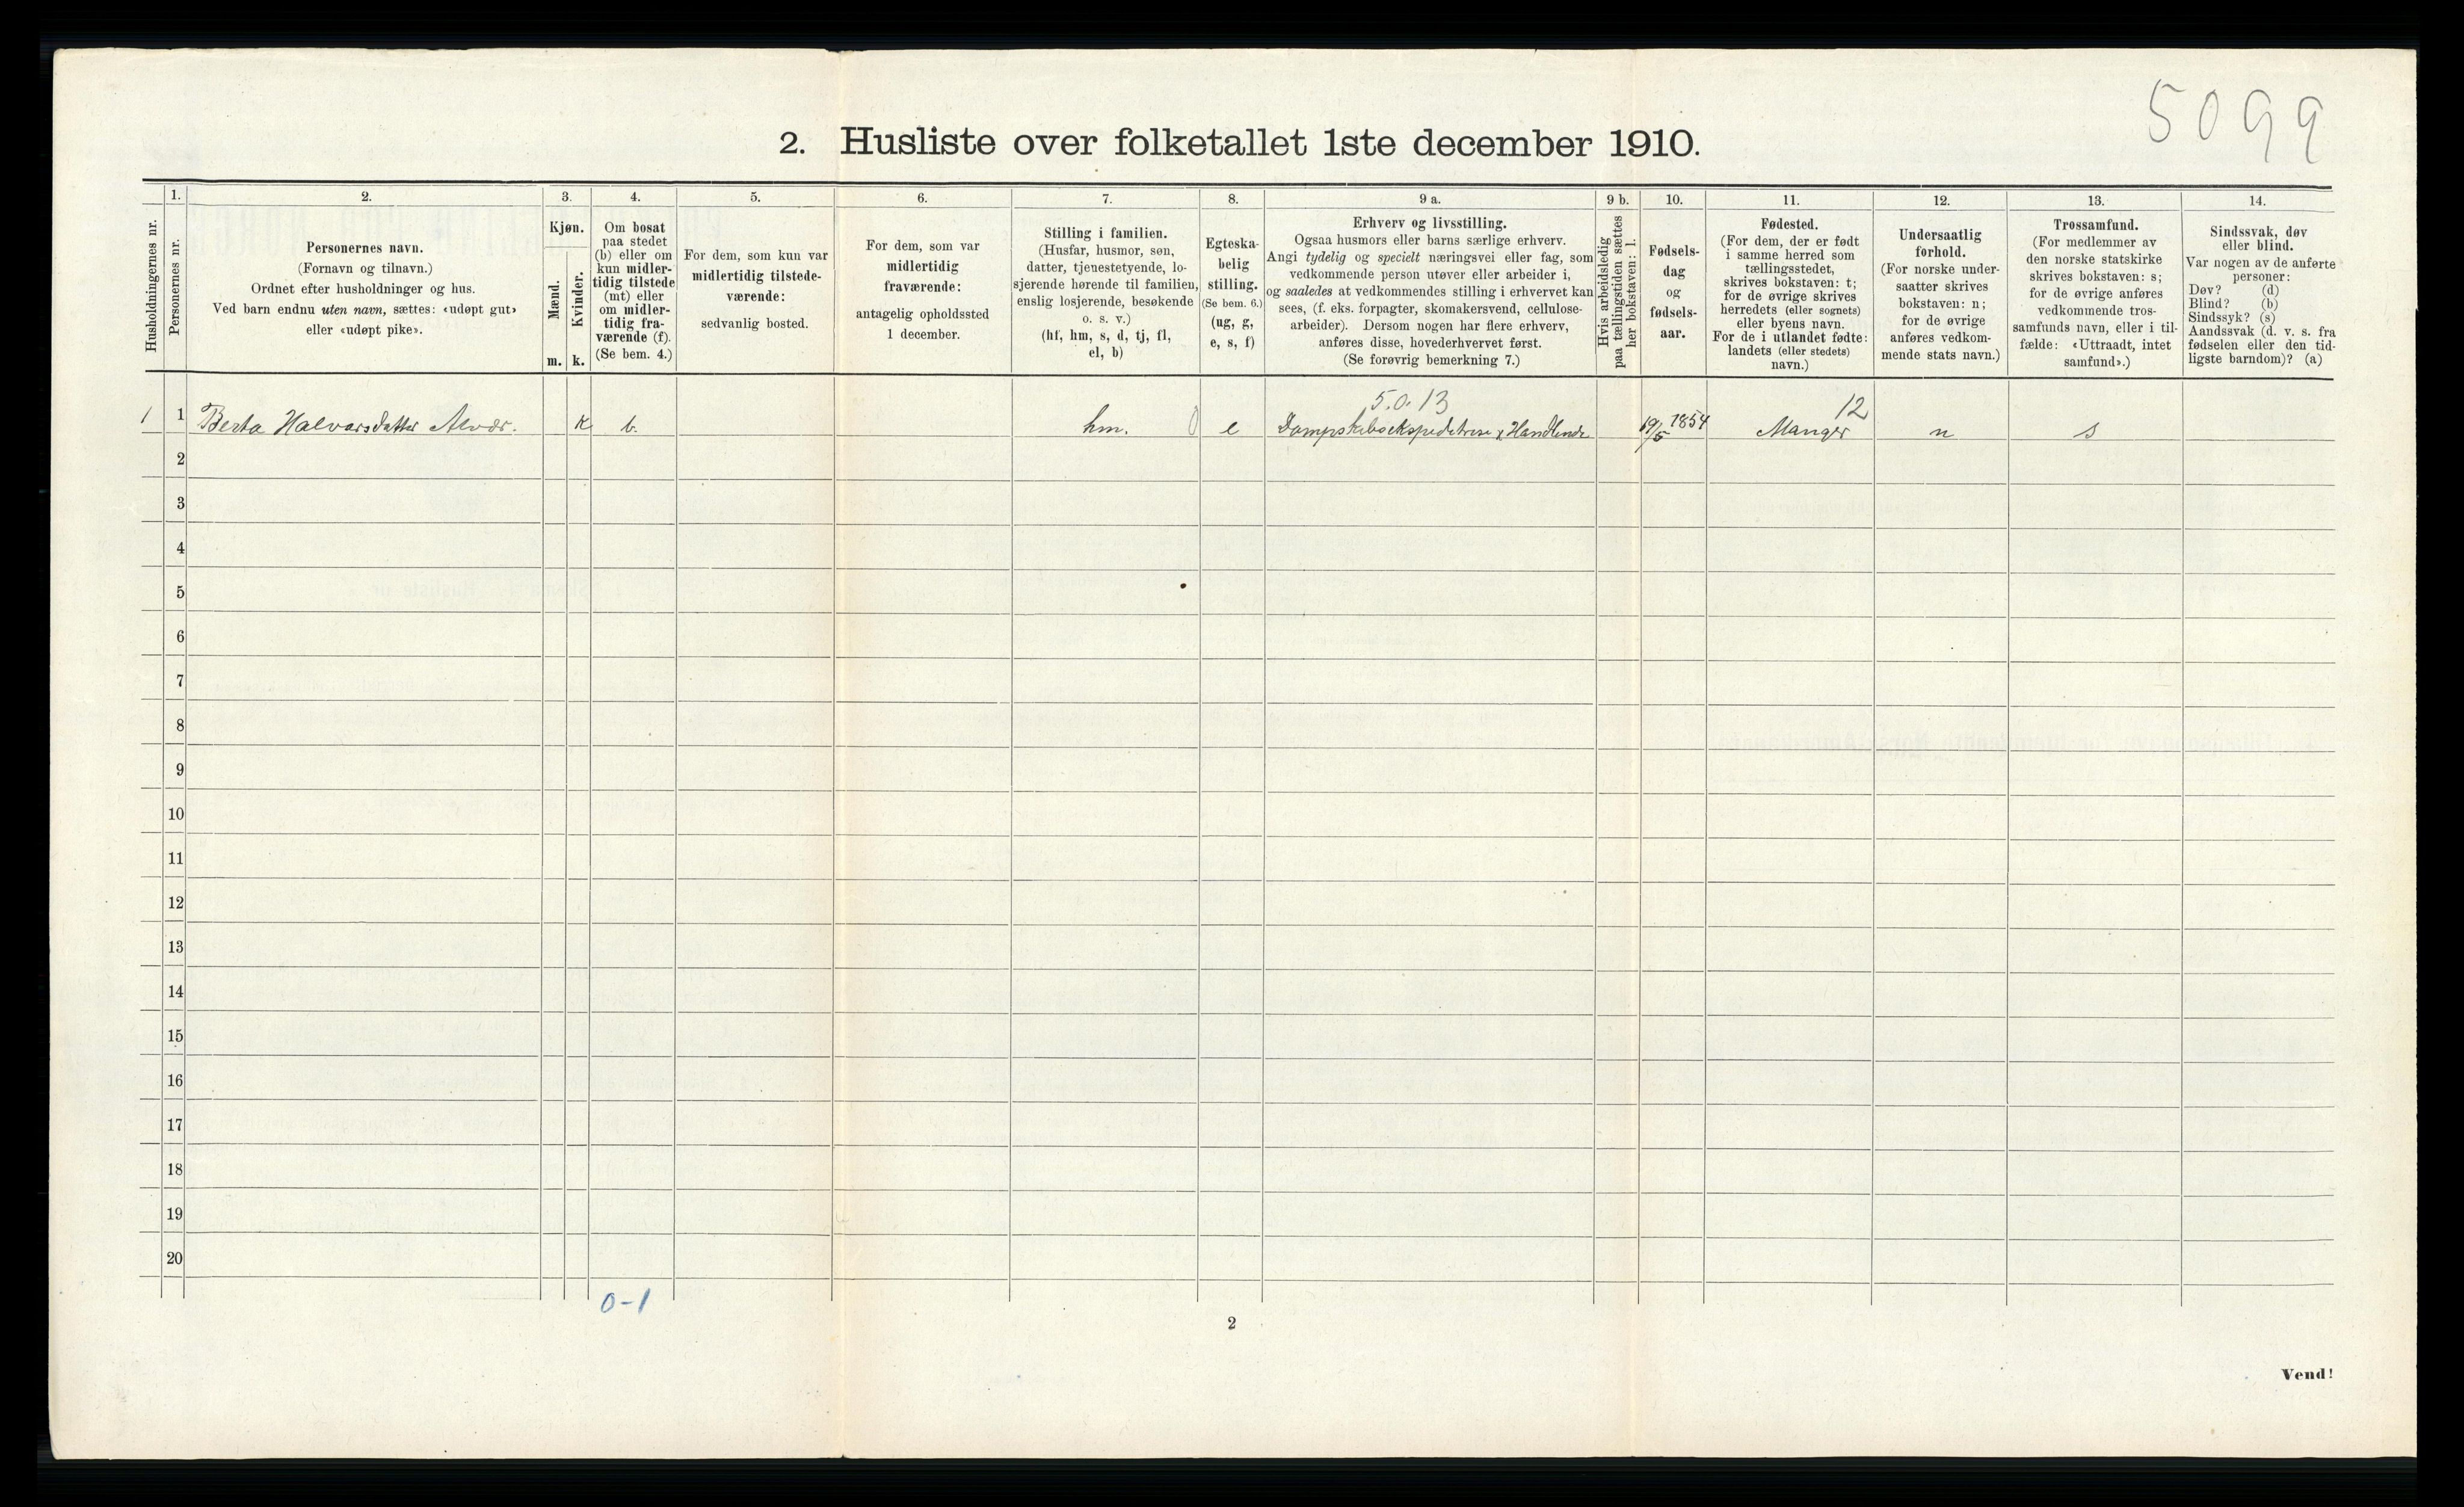 5099
2. Husliste over folketallet 1ste december 1910.
Husholdningernes nr.
1.
Personernes nr.
2.
Personernes navn.
(Fornavn og tilnavn.)
Ordnet efter husholdninger og hus.
Ved barn endnu uten navn, sættes: «udøpt gut»
eller «udøpt pike».
3.
Kjøn.
Mænd.
m.
Kvinder.
k.
4.
Om bosat
paa stedet
(b) eller om
kun midler-
tidig tilstede
(mt) eller
om midler-
tidig fra-
værende (f).
(Se bem. 4.)
5.
For dem, som kun var
midlertidig tilstede-
værende:
sedvanlig bosted.
6.
For dem, som var
midlertidig
fraværende:
antagelig opholdssted
1 december.
7.
Stilling i familien.
(Husfar, husmor, søn,
datter, tjenestetyende, lo-
sjerende hørende til familien,
enslig losjerende, besøkende
o. s. v.)
(hf, hm, s, d, tj, fl,
el, b)
8.
Egteska-
belig
stilling.
(Se bem. 6.)
(ug, g,
e, s, f)
9 a.
Erhverv og livsstilling.
Ogsaa husmors eller barns særlige erhverv.
Angi tydelig og specielt næringsvei eller fag, som
vedkommende person utøver eller arbeider i,
og saaledes at vedkommendes stilling i erhvervet kan
sees, (f. eks. forpagter, skomakersvend, cellulose-
arbeider). Dersom nogen har flere erhverv,
anføres disse, hovederhvervet først.
(Se forøvrig bemerkning 7.)
9 b.
Hvis arbeidsledig
paa tællingstiden sættes
her bokstaven: l.
10.
Fødsels-
dag
og
fødsels-
aar.
11.
Fødested.
(For dem, der er født
i samme herred som
tællingsstedet,
skrives bokstaven: t;
for de øvrige skrives
herredets (eller sognets)
eller byens navn.
For de i utlandet fødte:
landets (eller stedets)
navn.)
12.
Undersaatlig
forhold.
(For norske under-
saatter skrives
bokstaven: n;
for de øvrige
anføres vedkom-
mende stats navn.)
13.
Trossamfund.
(For medlemmer av
den norske statskirke
skrives bokstaven: s;
for de øvrige anføres
vedkommende tros-
samfunds navn, eller i til-
fælde: «Uttraadt, intet
samfund».)
14.
Sindssvak, døv
eller blind.
Var nogen av de anførte
personer:
Døv? (d)
Blind? (b)
Sindssyk? (s)
Aandssvak (d. v. s. fra
fødselen eller den tid-
ligste barndom)? (a)
5.0.13
12
1 1 Berta Halvorsdatter Alvær. K b. hm. 0 e Dampskibsekspeditrise & Handlende 19/5 1854 Manger n s
2
3
4
5
6
7
8
9
10
11
12
13
14
15
16
17
18
19
20
0-1
2
Vend!